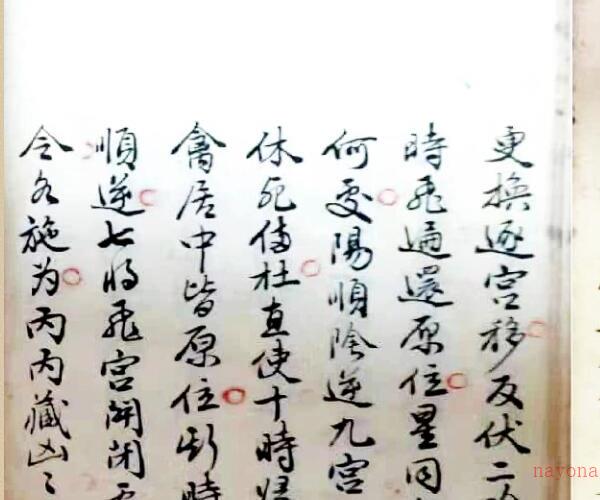 更換逐宮移反伏二
時飛遍還原位星同
何处陽順陰逆九宮
休死傷杜直使十時歸
禽居中皆原位斷時
順逆七將飛宮開闭
令名施为丙内藏凶〻
nayona